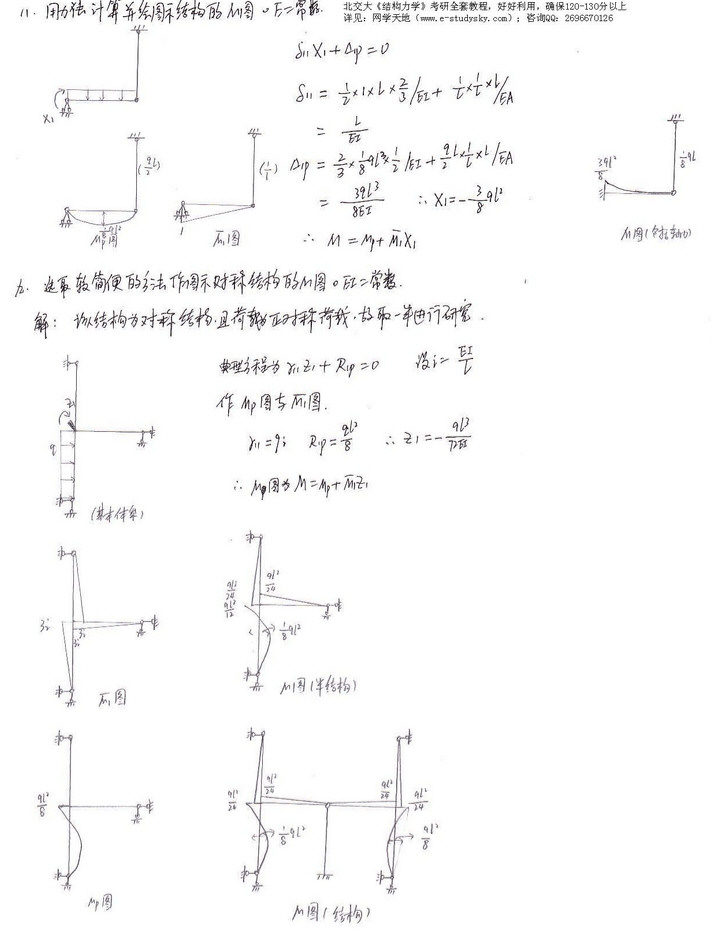 八. 用力法计算并绘图示结构的M图。E=常数.
北交大《结构力学》考研全套教程，好好利用，确保120-130分以上
详见：网学天地（www.e-studysky.com）；咨询QQ：2696670126
δ11X1+Δ1P=0
δ11 = 1/2×1×L×2/3/EI + 1/L×1/L×L/EA
= L/EI
Δ1P = 2/3×1/8ql³×1/2/EI + ql/2×1/L×L/EA
= 3ql³/8EI ∴ X1=-3/8ql²
∴ M = Mp+M̄1X1
X1
(ql/2)
(1/L)
Mp图
1
M̄1图
3ql²/8
1/8ql
九. 选取较简便的方法作图示对称结构的M图。EI=常数.
解: 该结构为对称结构,且荷载为正对称荷载.故取一半进行研究.
典型方程为 γ11Z1+R1P=0 设i=EI/L
作Mp图与M̄1图.
γ11=9i R1P=ql²/8 ∴ Z1=-ql³/72EI
∴ M图为M=Mp+M̄1Z1
Z1
q
(基本体系)
3i
3i
3i
M̄1图
ql²/24
ql²/24
ql²/12
1/8ql²
M图(半结构)
ql²/8
Mp图
ql²/24
ql²/24
ql²/24
1/8ql²
ql²/8
M图(结构)